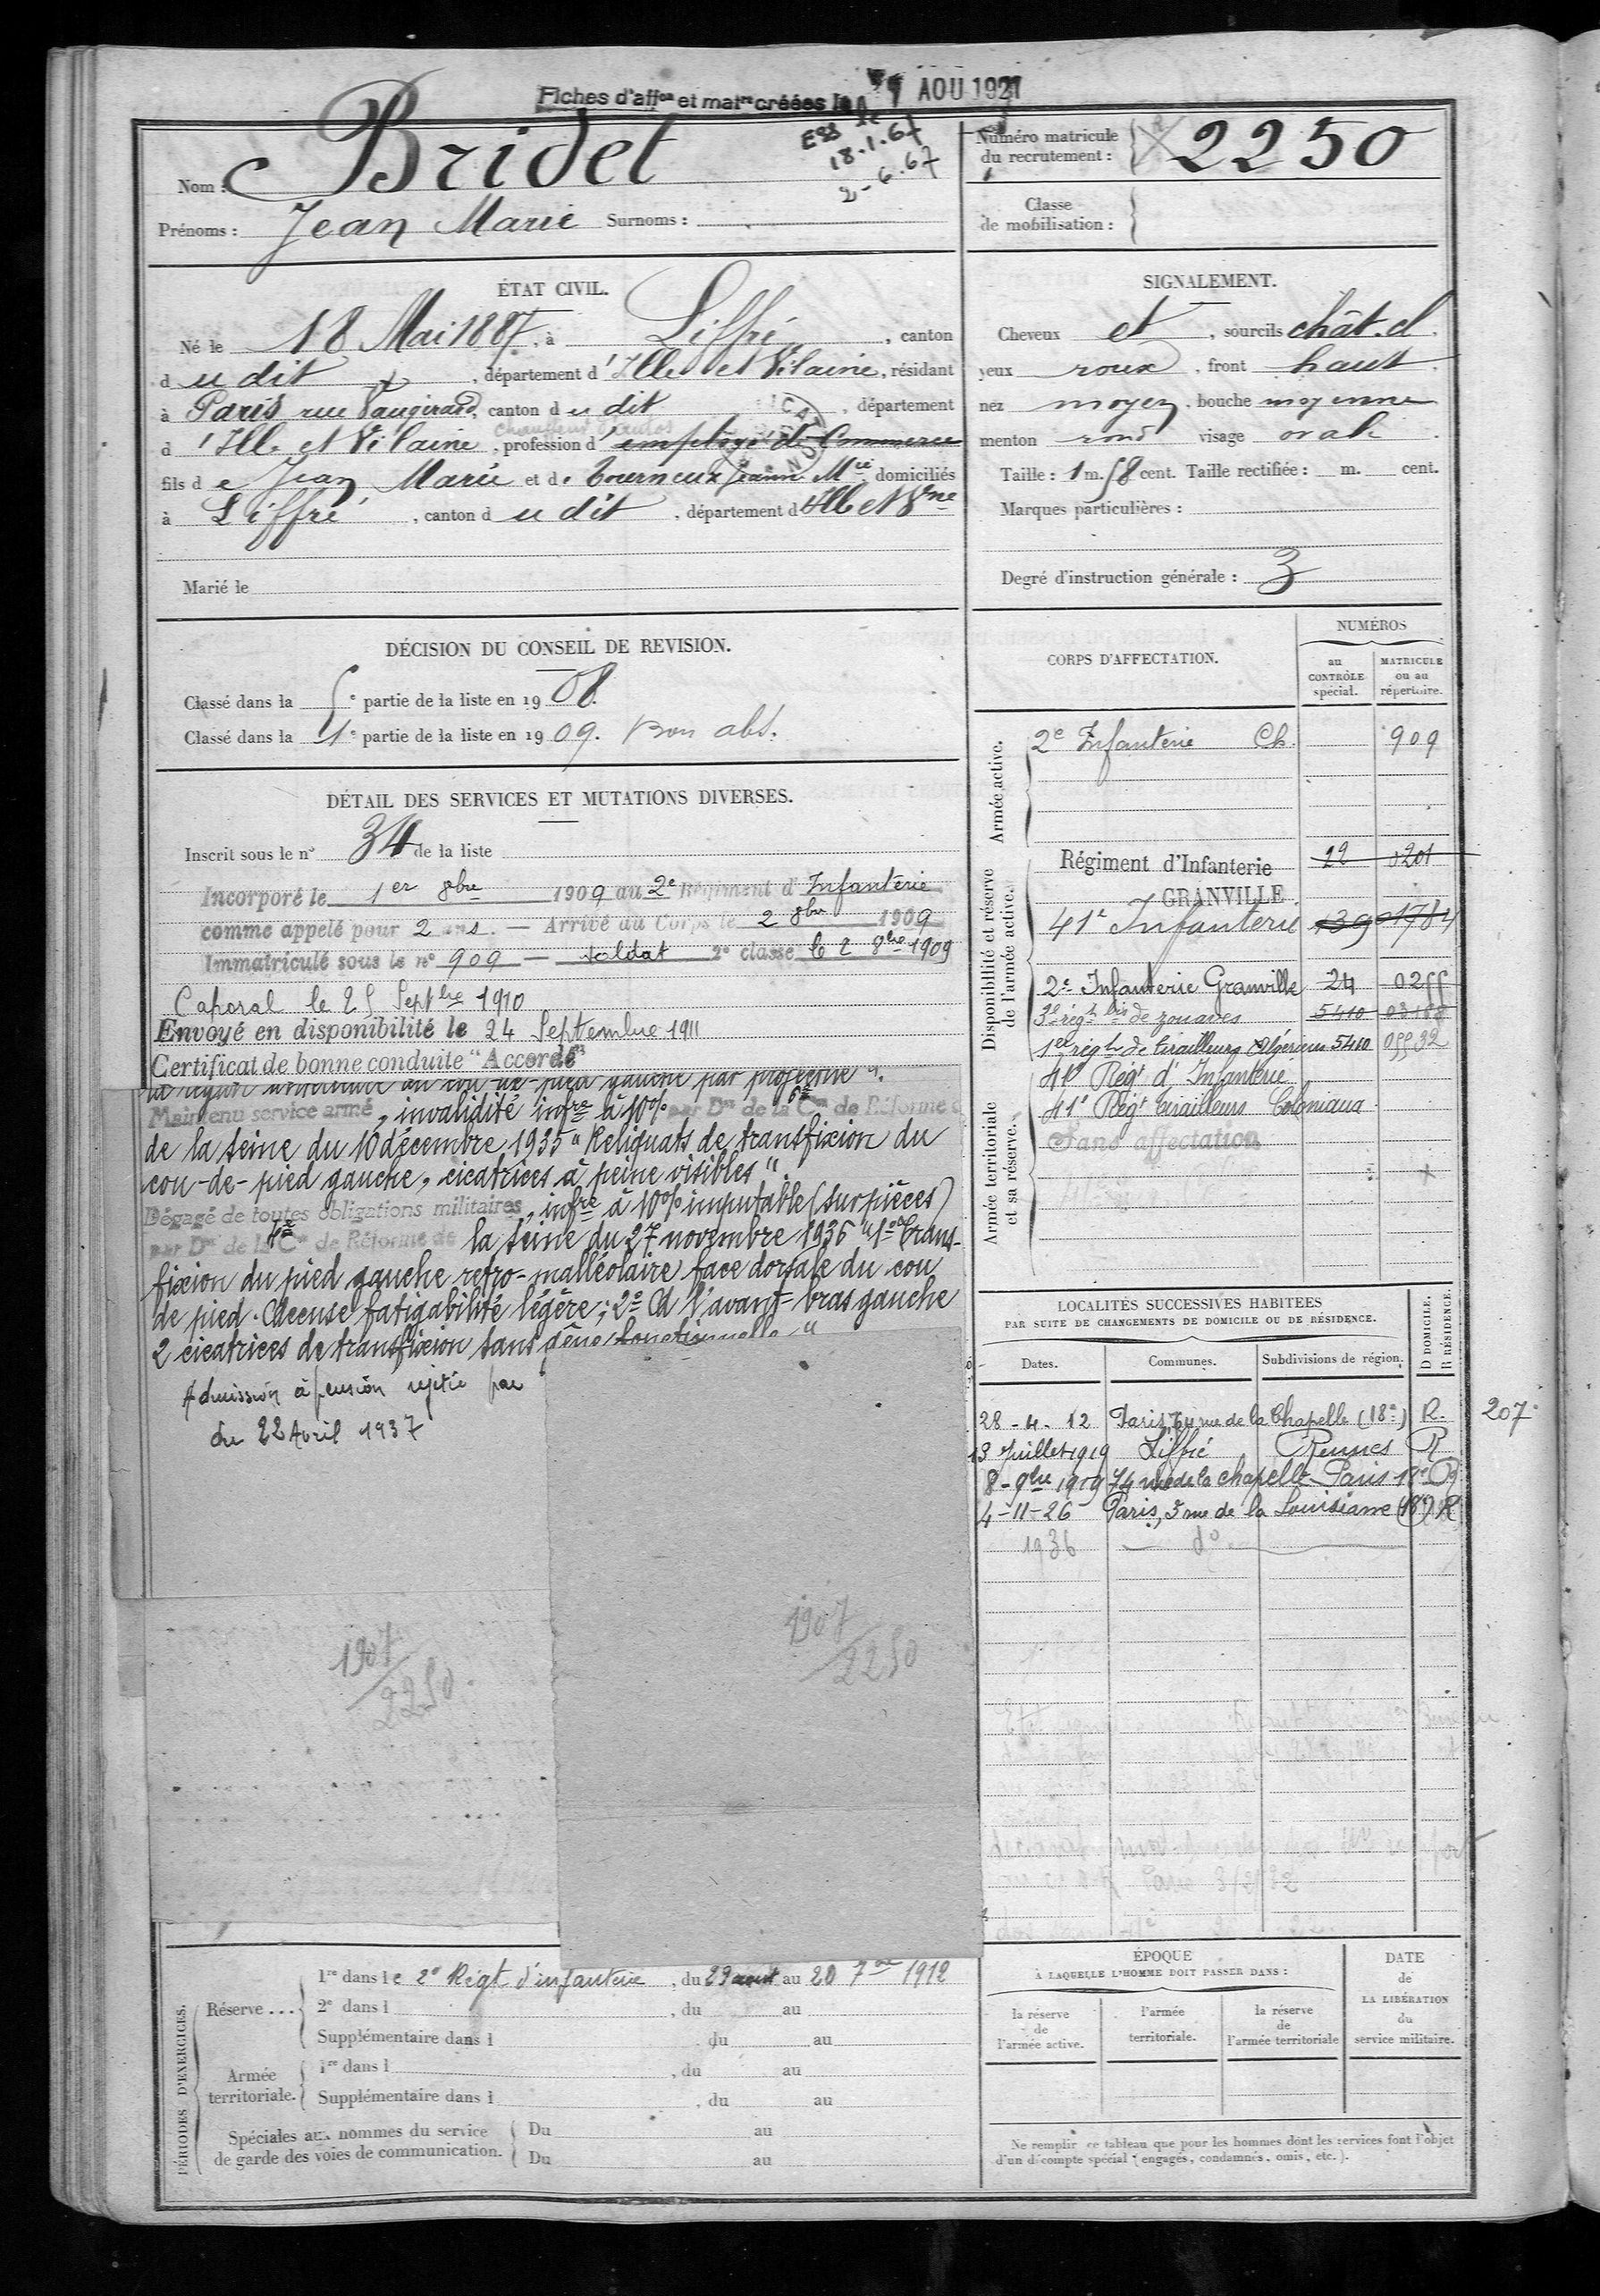 Fiches d'aff^on et mat^re créées le AOU 1927
Nom : Bridet
Ess le
18.1.67
2-6.67
Prénoms : Jean Marie Surnoms :
Numéro matricule
du recrutement : 2250
Classe
de mobilisation :
ÉTAT CIVIL.
Né le 18 Mai 1887, à Liffré, canton
d u dit, département d'Ille et Vilaine, résidant
à Paris rue Vaugirard, canton d u dit, département
d'Ille et Vilaine, profession d'employé de Commerce
chauffeur d'autos
fils d e Jean Marie et d e Tourneux Jeanne M^ie domiciliés
à Liffré, canton d u dit, département d'Ille et V^ne
Marié le
SIGNALEMENT.
Cheveux et, sourcils chât. cl.
yeux roux, front haut.
nez moyen, bouche moyenne
menton rond visage ovale.
Taille : 1 m. 58 cent. Taille rectifiée : m. cent.
Marques particulières :
Degré d'instruction générale : 3
DÉCISION DU CONSEIL DE REVISION.
Classé dans la 5e partie de la liste en 1908.
Classé dans la 1e partie de la liste en 1909. Bon abs.
DÉTAIL DES SERVICES ET MUTATIONS DIVERSES.
Inscrit sous le n° 34 de la liste
Incorporé le 1er 8bre 1909 au 2e Régiment d'Infanterie
comme appelé pour 2 ans. — Arrivé au Corps le 2 8bre 1909
Immatriculé sous le n° 909 — soldat 2e classe le 2 8bre 1909
Caporal le 25 Sept^bre 1910
Envoyé en disponibilité le 24 Septembre 1911
Certificat de bonne conduite "Accordé"
cou-de-pied gauche par projectile".
Maintenu service armé, invalidité inf^re à 10% par D^on de la 6e C^on de Réforme d
de la Seine du 10 décembre 1935 "Reliquats de transfixion du
cou-de-pied gauche, cicatrices à peine visibles".
Dégagé de toutes obligations militaires, inf^re à 10% imputable (sur pièces)
par D^on de la C^on de Réforme de la Seine du 27 novembre 1936 "1° Trans-
fixion du pied gauche retro-malléolaire face dorsale du cou
de pied. Accuse fatigabilité légère; 2° A l'avant-bras gauche
2 cicatrices de transfixion sans gêne fonctionnelle"
Admission à pension rejetée par
du 22 Avril 1937
1907
2250
1907
2250
CORPS D'AFFECTATION.
NUMÉROS
au
CONTRÔLE
spécial.
MATRICULE
ou au
répertoire.
Armée active.
2e Infanterie Ch. 909
Disponibilité et réserve
de l'armée active.
Régiment d'Infanterie 22 0201
GRANVILLE
41e Infanterie 139 01784
2e Infanterie Granville 24 0255
3e rég^t bis de zouaves 5410 03188
1er rég^t de tirailleurs Algériens 5410 05532
Armée territoriale
et sa réserve.
41e Rég^t d'Infanterie
41e Rég^t Tirailleurs Coloniaux
Sans affectation
LOCALITÉS SUCCESSIVES HABITÉES
PAR SUITE DE CHANGEMENTS DE DOMICILE OU DE RÉSIDENCE.
D DOMICILE.
R RÉSIDENCE.
Dates. Communes. Subdivisions de région.
28-4-12 Paris, 74 rue de la Chapelle (18e) R. 207
13 Juillet 1919 Liffré Rennes R
8-9bre 1909 74 rue de la chapelle Paris 18e R
4-11-26 Paris, 3 rue de la Louisiane (18e) R
1936 d°
PÉRIODES D'EXERCICES.
Réserve ...
1re dans le 2e Régt d'infanterie, du 29 août au 20 7bre 1912
2e dans l , du au
Supplémentaire dans l , du au
Armée
territoriale.
1re dans l , du au
Supplémentaire dans l , du au
Spéciales aux hommes du service
de garde des voies de communication.
Du au
Du au
ÉPOQUE
À LAQUELLE L'HOMME DOIT PASSER DANS :
la réserve
de
l'armée active.
l'armée
territoriale.
la réserve
de
l'armée territoriale
DATE
de
LA LIBÉRATION
du
service militaire.
Ne remplir ce tableau que pour les hommes dont les services font l'objet
d'un décompte spécial (engagés, condamnés, omis, etc.).